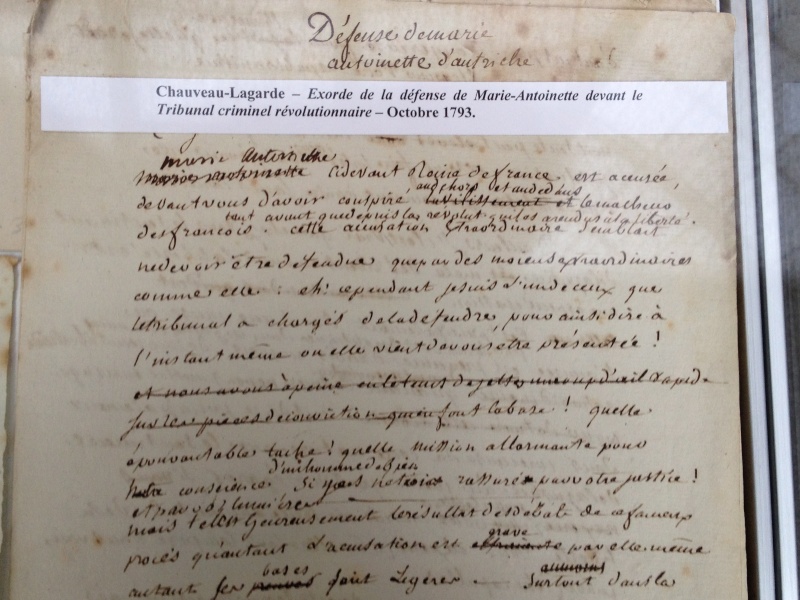 Défense de marie
antoinette d'autriche
Chauveau-Lagarde – Exorde de la défense de Marie-Antoinette devant le
Tribunal criminel révolutionnaire – Octobre 1793.
marie Antoinette
marie antoinette cidevant Reine de france est accusée,
au dehors et au dedans
devant vous d'avoir conspiré l'avilissement et le malheur
tant avant que depuis la revolut. qui les a rendus à la liberté.
des françois. cette accusation Extraordinaire semblait
ne devoir être defendue que par des moiens extraordinaires
comme elle : eh! cependant je suis l'un de ceux que
le tribunal a chargés de la defendre, pour ainsi dire à
l'instant même ou elle vient devous etre présentée !
et nous avons à peine eu le tems de jetter un coup d'œil rapide
sur les pieces de conviction qui en font la base ! quelle
épouvantable tache ! quelle mission allarmante pour
d'un homme de bien
notre conscience si rassuré par votre justice !
et par vos lumières
mais telest heureusement le résultat des débats de ce fameux
grave
procès qu'autant l'acusation est par elle même
bases
autant ses preuves sont Légères. surtout dans la